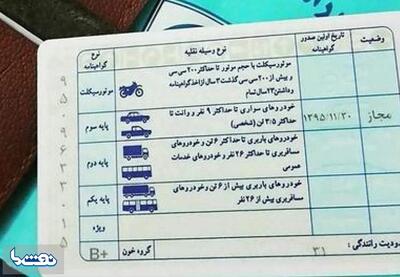 نوع گواهینامه
نوع وسیله نقلیه
تاریخ اولین صدور گواهینامه
وضعیت
موتورسیکلت
موتورسیکلت با حجم موتور تا حداکثر ۲۰۰ سی سی
و بیش از ۲۰۰ سی سی گذشت ۳ سال از اخذ گواهینامه
و داشتن ۲۳ سال تمام
پایه سوم
خودروهای سواری تا حداکثر ۹ نفر و وانت تا
حداکثر ۳/۵ تن (شخصی)
۱۳۹۵/۱۱/۳۰
مجاز
پایه دوم
خودروهای باربری تا حداکثر ۶ تن و خودروهای
مسافربری تا حداکثر ۲۶ نفر و خودروهای خدمات
عمومی
پایه یکم
خودروهای باربری بیش از ۶ تن و خودروهای
مسافربری بیش از ۲۶ نفر
ویژه
ودیت رانندگی :
۳۱
گروه خون
B+
۹
۵
۰
۹
۶
۳
۳
۰
۱
۵
نقشما